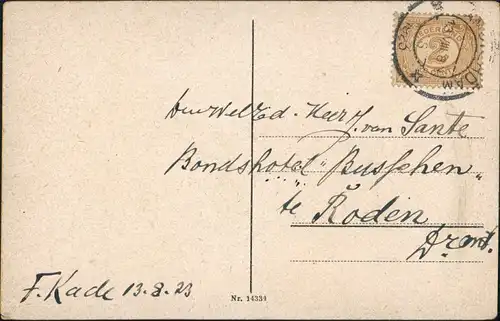 den Weled. Heer J. van Sante
Bondshotel "Busschen"
te Roden
Drent.
F. Kade 13-8-23
Nr. 14334
DAM